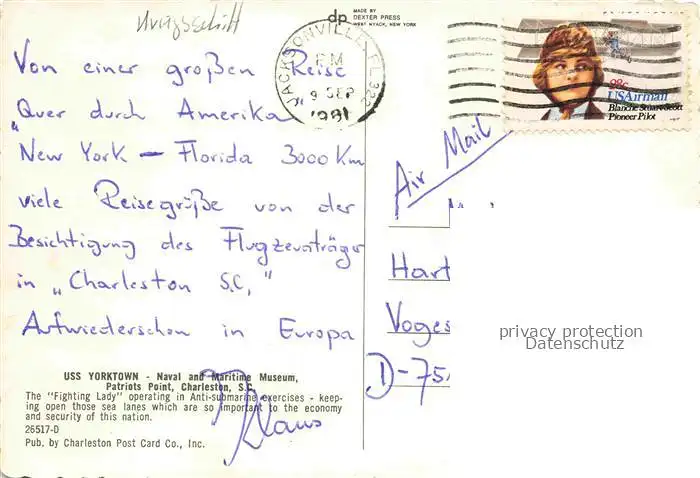 Kriegsschiff
dp
MADE BY
DEXTER PRESS
WEST NYACK, NEW YORK
JACKSONVILLE, FL 322
PM
9 SEP
1981
28c
USAirmail
Blanche Stuart Scott
Pioneer Pilot
Von einer großen Reise
„Quer durch Amerika"
New York – Florida 3000 Km
viele Reisegrüße von der
Besichtigung des Flugzeugträgers
in „Charleston S.C."
Aufwiedersehen in Europa
Klaus
Air Mail
Hart
Voges
D-75
privacy protection
Datenschutz
USS YORKTOWN - Naval and Maritime Museum,
Patriots Point, Charleston, S.C.
The "Fighting Lady" operating in Anti-submarine exercises - keep-
ing open those sea lanes which are so important to the economy
and security of this nation.
26517-D
Pub. by Charleston Post Card Co., Inc.